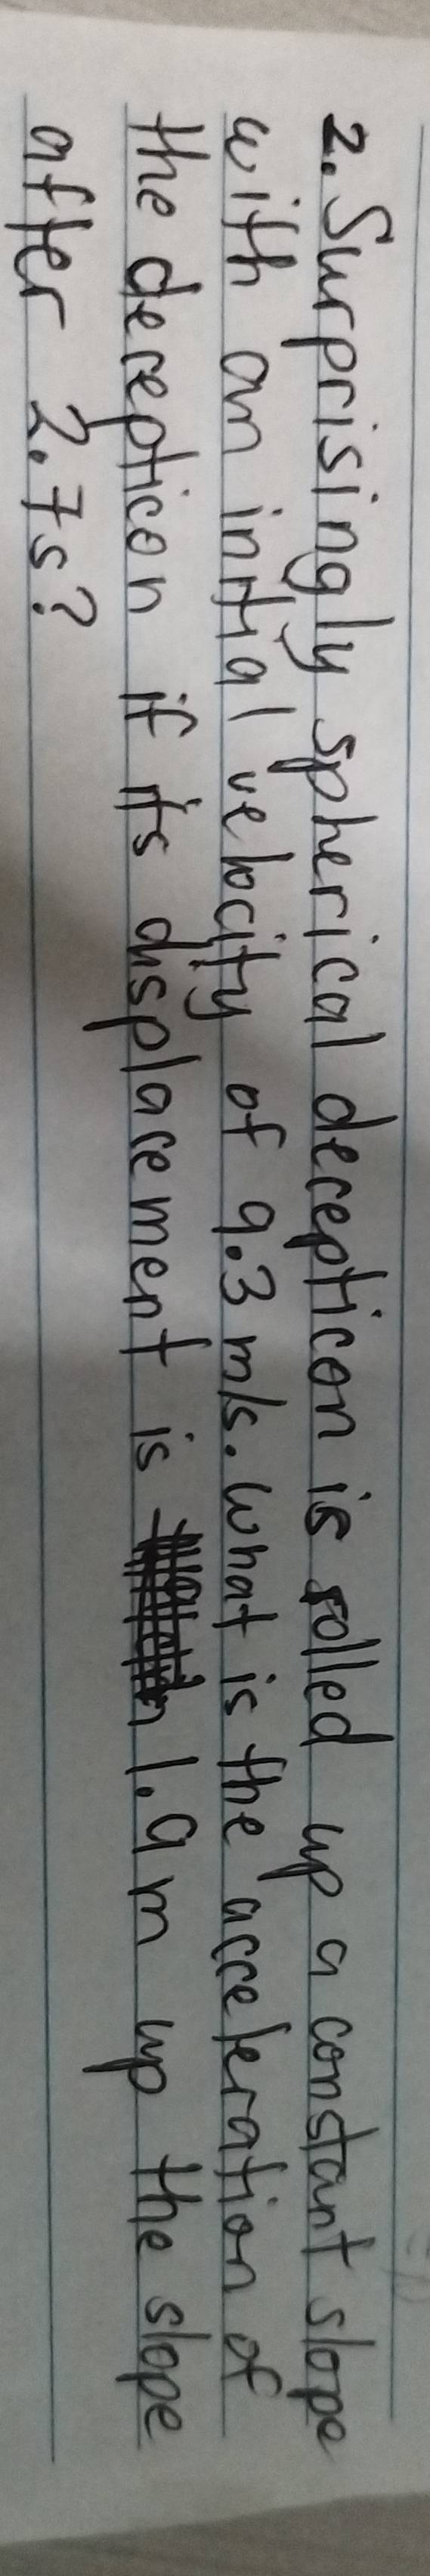 2. Surprisingly spherical decepticon is rolled up a constant slope
with an initial velocity of 9.3 m/s. What is the acceleration of
the decepticon if its displacement is 1.9 m up the slope
after 2.7s?